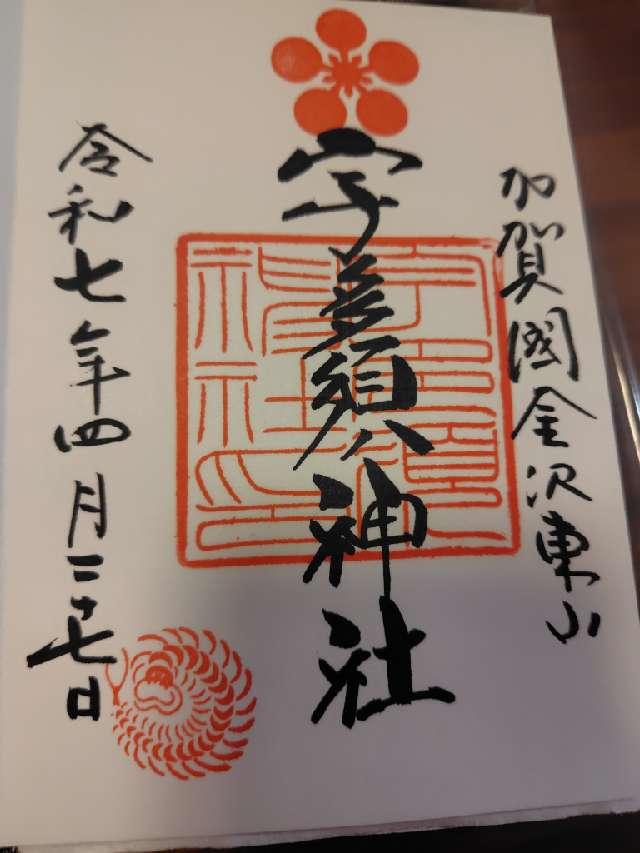 加賀國金沢東山
宇多須神社
令和七年四月二十七日